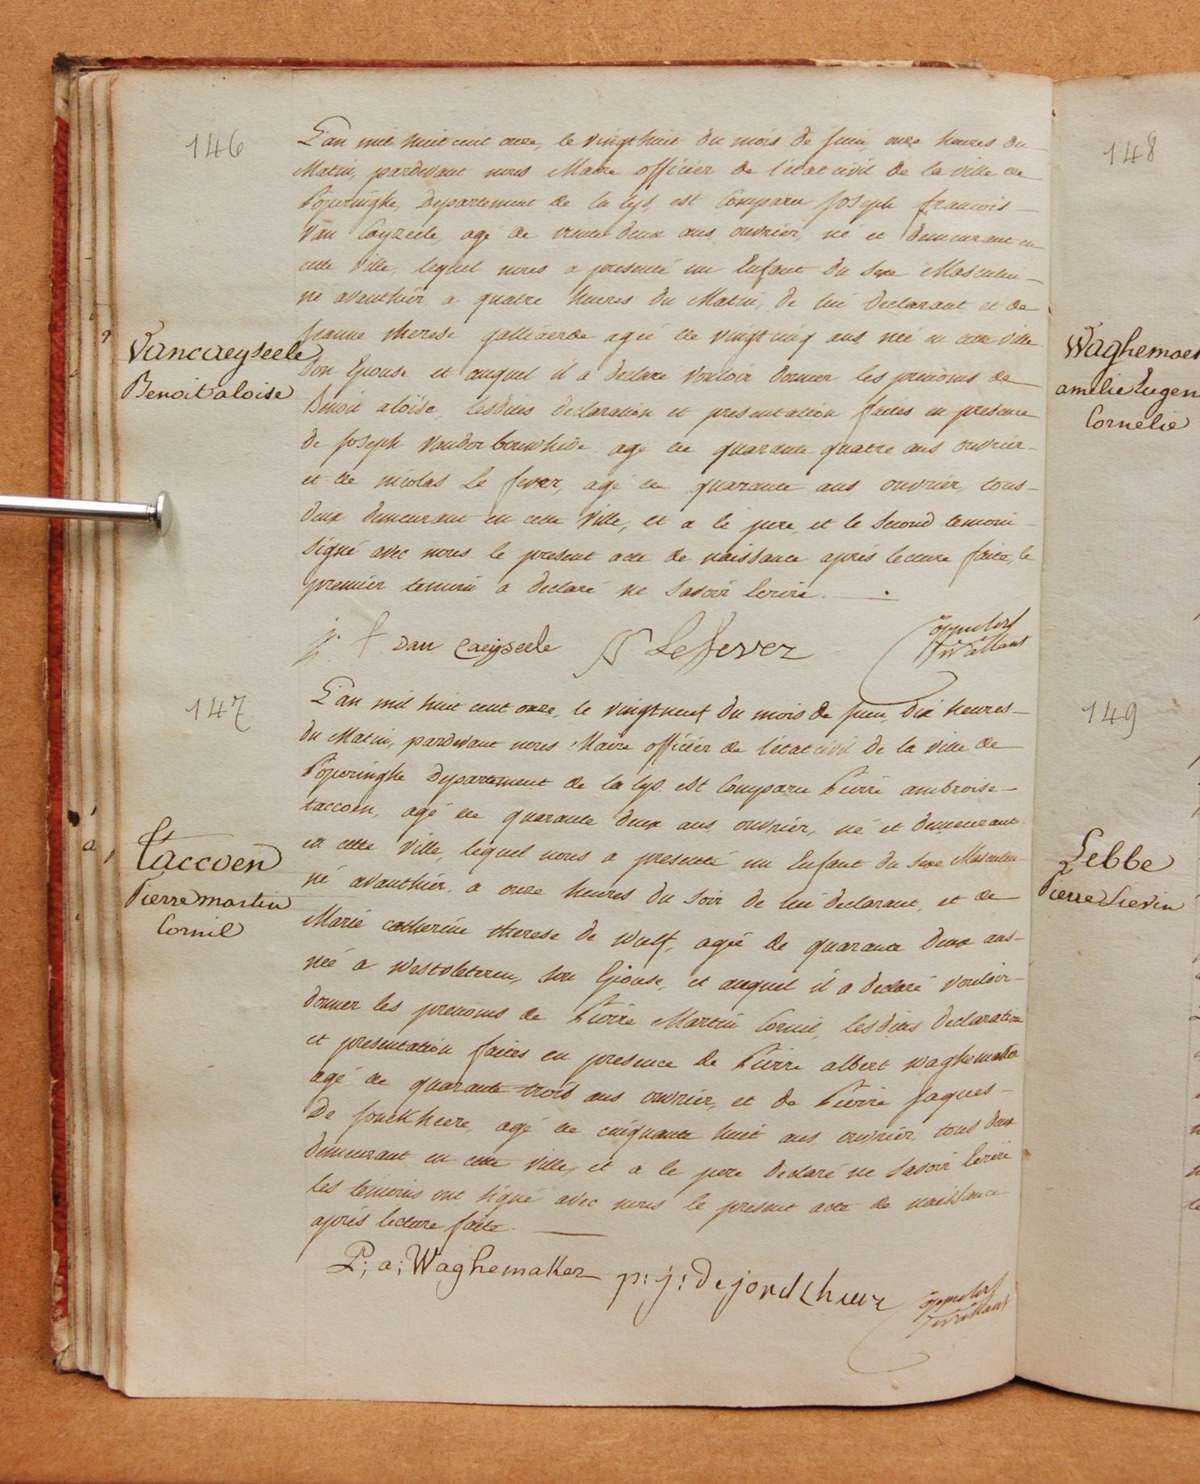 146
L'an mil huit cent onze, le vingthuit du mois de juin, onze heures du
Matin, pardevant nous Maire officier de l'état civil de la ville de
Poperinghe, Departement de la Lys, est Comparu Joseph francois
Van Cayzeele, agé de trente deux ans, ouvrier, né et demeurant en
cette Ville, lequel nous a presenté un Enfant du Sexe Masculin
né avanthier a quatre heures du Matin, de lui Declarant et de
jeanne therese agée de vingtcinq ans née en cette ville
Son Epouse et auquel il a Declaré Vouloir donner les prenoms de
Benoit aloïse, lesdites declaration et presentation faites en presence
de Joseph agé de quarante quatre ans ouvrier
et de nicolas Le fever, agé de quarante ans ouvrier, tous
deux demeurant en cette Ville, et a le pere et le Second temoin
signé avec nous le present acte de naissance après lecture faite, le
premier temoin a declaré ne Savoir Ecrire.
Vancaeyseele
Benoit aloise
j. f Van Caeyseele N Lefever
147
L'an mil huit cent onze, le vingtneuf du mois de juin, Dix heures
du Matin, pardevant nous Maire officier de l'état civil de la ville de
Poperinghe Departement de la Lys est Comparu Pierre ambroise
taccoen, agé de quarante deux ans, ouvrier, né et demeurant
en cette Ville, lequel nous a presenté un Enfant du Sexe Masculin
né avanthier a onze heures du Soir de lui declarant, et de
Marie catherine therese de Wulf, agée de quarante Deux ans
née a Westvleteren, Son Epouse, et auquel il a declaré vouloir
donner les prenoms de Pierre Martin Cornil, lesdites Declaration
et presentation faites en presence de Pierre albert Waghemaker
agé de quarante trois ans ouvrier, et de Pierre Jaques
De Jonckheere, agé de cinquante huit ans ouvrier tous deux
demeurant en cette Ville, et a le pere declaré ne Savoir Ecrire
les temoins ont signé avec nous le present acte de naissance
après lecture faite.
Taccoen
Pierre martin
Cornil
P: a: Waghemaker p: j: De jonckheere
148
Waghemaer
amelie Eugen
Cornelie
149
Lebbe
Pierre Lievin